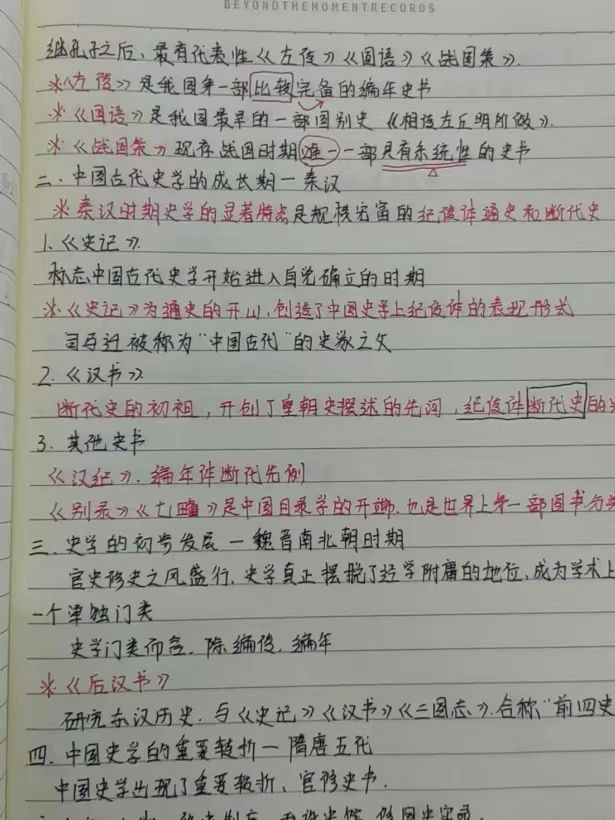 BEYONDTHEMOMENTRECORDS
继孔子之后，最有代表性《左传》《国语》《战国策》.
※《左传》是我国第一部比较完备的编年史书
※《国语》是我国最早的一部国别史《相传左丘明所做》.
※《战国策》现存战国时期唯一一部具有系统性的史书
二、中国古代史学的成长期—秦汉
※秦汉时期史学的显著特点是规模完备的纪传体通史和断代史
1.《史记》.
标志中国古代史学开始进入自觉确立的时期
※《史记》为通史的开山，创造了中国史学上纪传体的表现形式
司马迁被称为“中国古代”的史家之父
2.《汉书》.
断代史的初祖，开创了皇朝史撰述的先河，纪传体断代史的
3. 其他史书
《汉纪》.编年体断代先例
《别录》《七略》是中国目录学的开端.也是世界上第一部图书分类
三、史学的初步发展—魏晋南北朝时期
官史修史之风盛行，史学真正摆脱了经学附庸的地位，成为学术上
一个单独门类
史学门类而言，除编传，编年
※《后汉书》
研究东汉历史.与《史记》《汉书》《三国志》.合称“前四史
四、中国史学的重要转折—隋唐五代
中国史学出现了重要转折、官修史书.